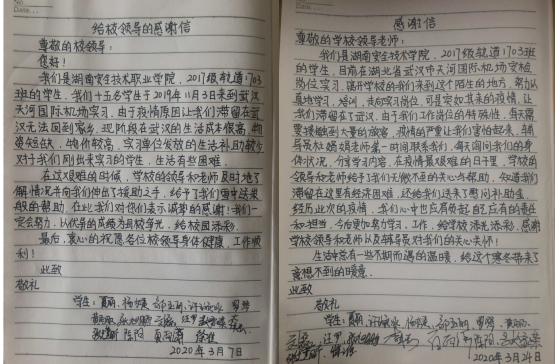 Date
给校领导的感谢信
尊敬的校领导:
您好!
我们是湖南安全技术职业学院,2017级轨道1703
班的学生,我们十五名学生于2019年11月3日来到武汉
天河国际机场实习。由于疫情原因让我们滞留在武
汉无法回到家乡,现阶段在武汉的生活成本很高,物
资短缺,物价较高,实习单位发的生活补助较少
对于我们刚出来实习的学生,生活有些困难。
在这艰难的时候,学校的领导和老师及时地了
解情况并向我们伸出了援助之手,给予了我们雪中送炭
般的帮助,在此我们对你们表示诚挚的感谢!我们一
定会努力,以优异的成绩为母校争光,给校园添彩。
最后,衷心的祝愿各位校领导身体健康,工作顺
利!
此致
敬礼
学生:
2020年3月7日
Date
感谢信
尊敬的学校领导老师:
我们是湖南安全技术学院,2017级轨道1703班
的学生,目前在湖北省武汉市天河国际机场安检
岗位实习,离开学校的我们来到这个陌生的地方,努力认
真地学习,培训,走向实习岗位,可是突如其来的疫情,让
我们滞留在了武汉,由于我们工作岗位的特殊性,每天需
要接触到大量的旅客,疫情的严重让我们害怕起来,辅导
员杜娟娟老师第一时间联系我们,每天询问我们的身
体状况,分享学习内容,在疫情最艰难的日子里,学校的
领导和老师给予了我们无微不至的关心与帮助,知道我们
滞留在这里有经济困难,还给我们送来了慰问补助金,
经历此次的疫情,我们心中也应肩负起自己应有的责任
和担当,今后更加努力学习,工作,给学校添光添彩,感谢
学校领导和老师以及辅导员对我们的关心关爱!
生活中总有一些不期而遇的温暖,给这个寒冬带来了
意想不到的暖意。
此致
敬礼
学生:
2020年3月24日